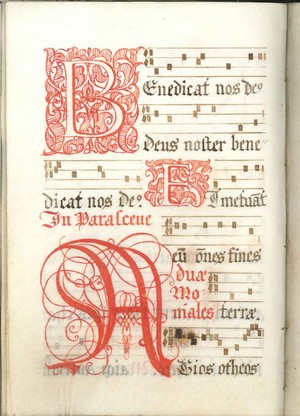 Benedicat nos de⁹
Deus noster bene
dicat nos de⁹ Et metuāt
In Parasceue
eū ōnes fines
duæ
Mo
niales terræ.
Agios otheos